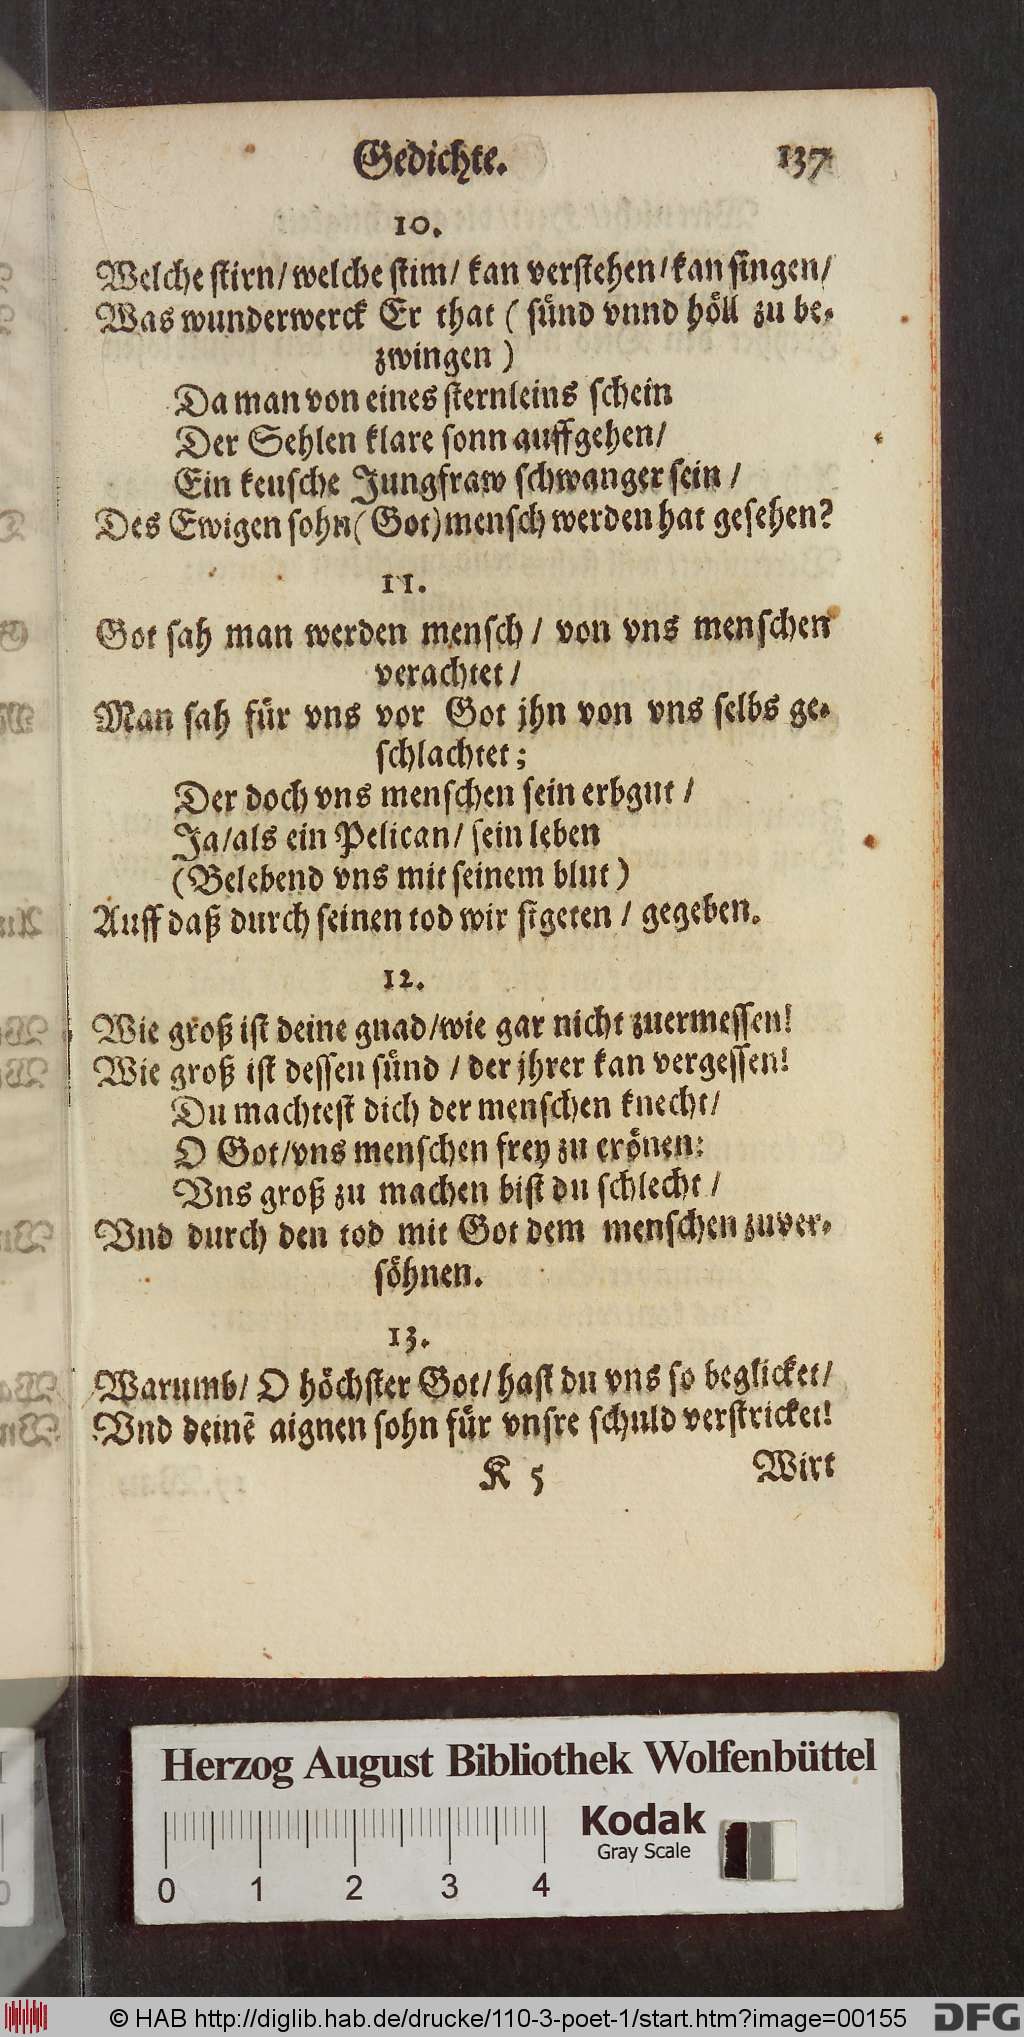 Gedichte. 137
10.
Welche stirn/ welche stim/ kan verstehen/ kan singen/
Was wunderwerck Er that ( sünd vnnd höll zu be-
zwingen )
Da man von eines sternleins schein
Der Sehlen klare sonn auffgehen/
Ein keusche Jungfraw schwanger sein /
Des Ewigen sohn ( Got) mensch werden hat gesehen?
11.
Got sah man werden mensch / von vns menschen
verachtet /
Man sah für vns vor Got jhn von vns selbs ge-
schlachtet ;
Der doch vns menschen sein erbgut /
Ja/ als ein Pelican/ sein leben
(Belebend vns mit seinem blut )
Auff daß durch seinen tod wir sigeten / gegeben.
12.
Wie groß ist deine gnad/wie gar nicht zuermessen!
Wie groß ist dessen sünd / der jhrer kan vergessen!
Du machtest dich der menschen knecht/
O Got/vns menschen frey zu erönen:
Vns groß zu machen bist du schlecht /
Vnd durch den tod mit Got dem menschen zuver-
söhnen.
13.
Warumb/ O höchster Got/ hast du vns so beglicket/
Vnd deinẽ aignen sohn für vnsre schuld verstricket!
K 5 Wirt
Herzog August Bibliothek Wolfenbüttel
Kodak
Gray Scale
0 1 2 3 4
© HAB http://diglib.hab.de/drucke/110-3-poet-1/start.htm?image=00155 DFG